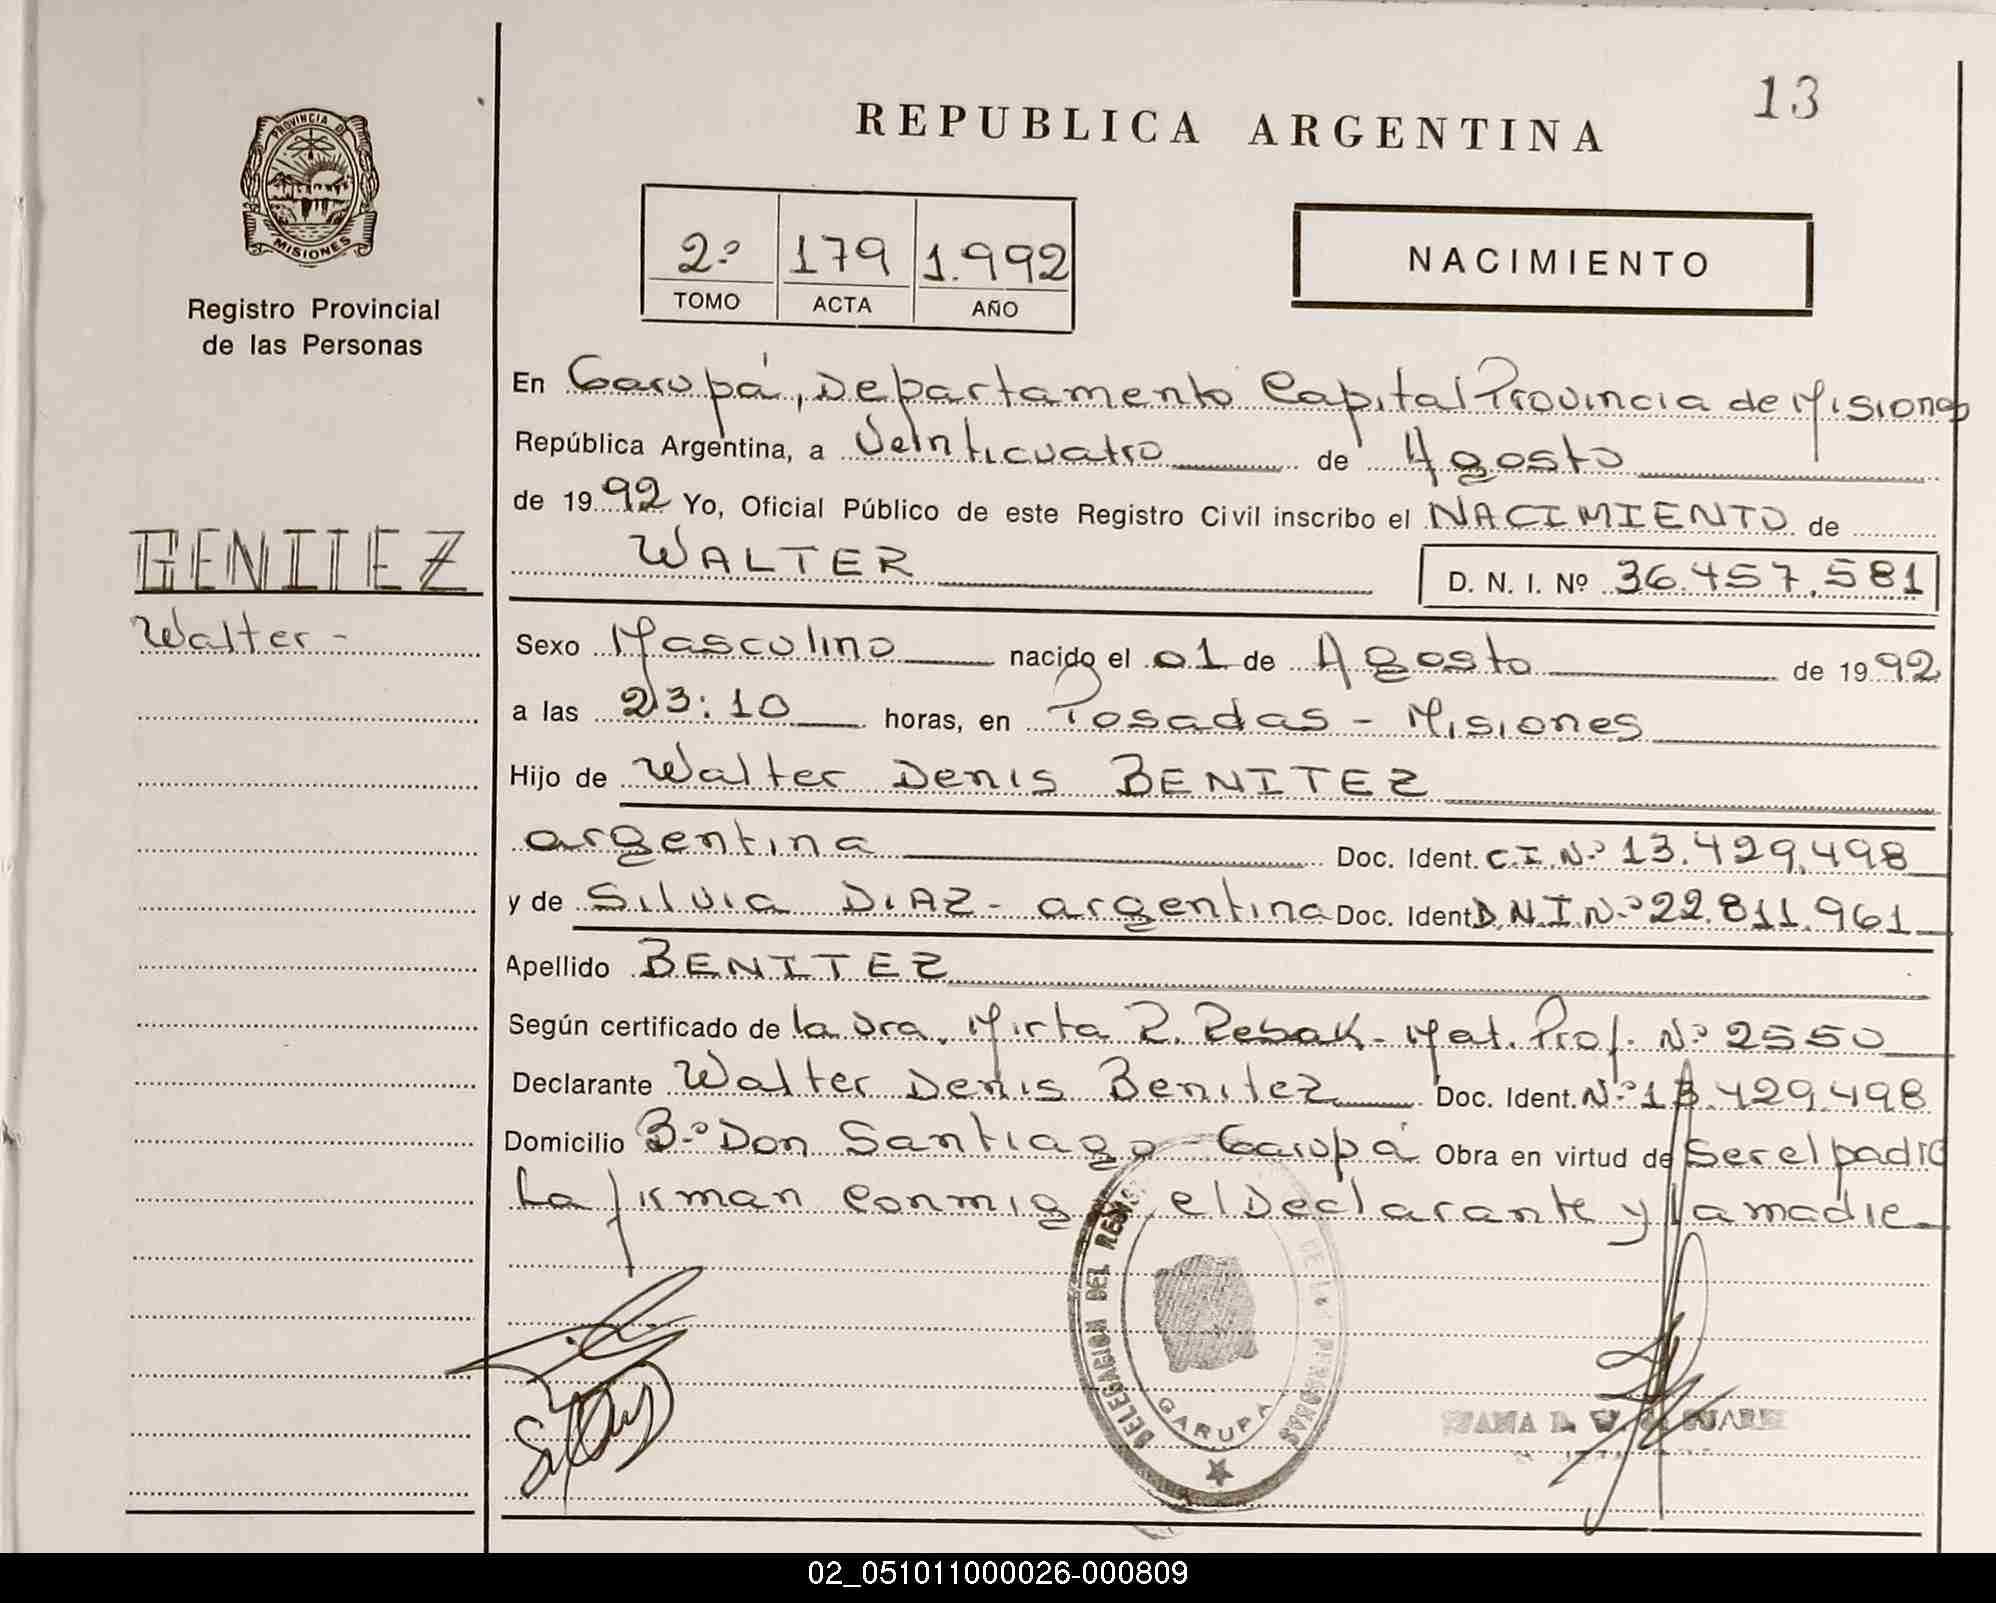 13
REPUBLICA ARGENTINA
PROVINCIA DE
MISIONES
Registro Provincial
de las Personas
2º 179 1.992
TOMO ACTA AÑO
NACIMIENTO
En Garupá, Departamento Capital Provincia de Misiones
República Argentina, a Veinticuatro de Agosto
de 1992 Yo, Oficial Público de este Registro Civil inscribo el NACIMIENTO de
WALTER D. N. I. Nº 36.457.581
BENITEZ
Walter -
Sexo Masculino nacido el 01 de Agosto de 1992
a las 23:10 horas, en Posadas - Misiones
Hijo de Walter Denis BENITEZ
argentina Doc. Ident. C.I.Nº 13.429.498
y de Silvia DIAZ - argentina Doc. Ident. D.N.I.Nº 22.811.961
Apellido BENITEZ
Según certificado de la Dra. Mirta R. Rebak - Mat. Prof. Nº 2550
Declarante Walter Denis Benitez Doc. Ident. Nº 13.429.498
Domicilio Bº Don Santiago - Garupá Obra en virtud de Ser el padre
La firman conmigo, el Declarante y la madre
DELEGACION DEL REGISTRO DE LAS PERSONAS
GARUPA
SUAREZ
02_051011000026-000809